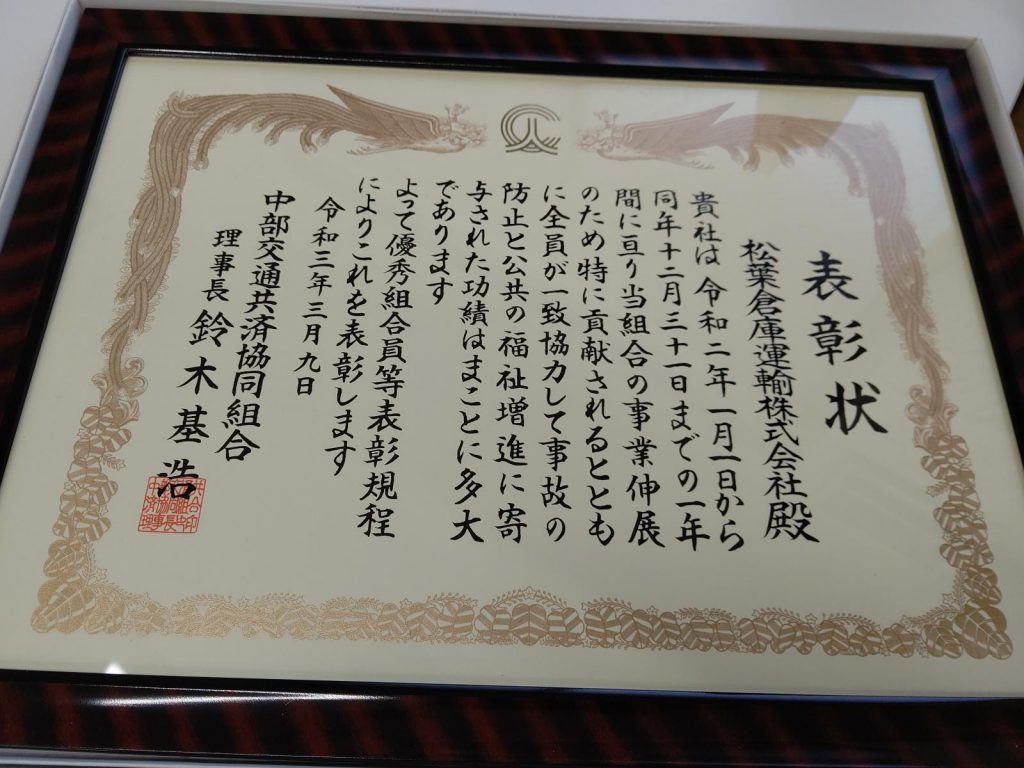 表彰状
松葉倉庫運輸株式会社殿
貴社は令和二年一月一日から
同年十二月三十一日までの一年
間に亘り当組合の事業伸展
のため特に貢献されるととも
に全員が一致協力して事故の
防止と公共の福祉増進に寄
与された功績はまことに多大
であります
よって優秀組合員等表彰規程
によりこれを表彰します
令和三年三月九日
中部交通共済協同組合
理事長 鈴木基浩